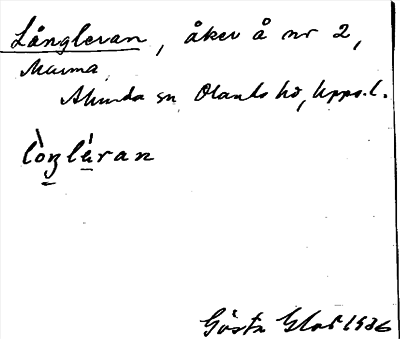 Långleran, åker å nr 2,
Marma,
Alunda sn Olands hd, Upps. l.
lòŋléran
Gösta 1936